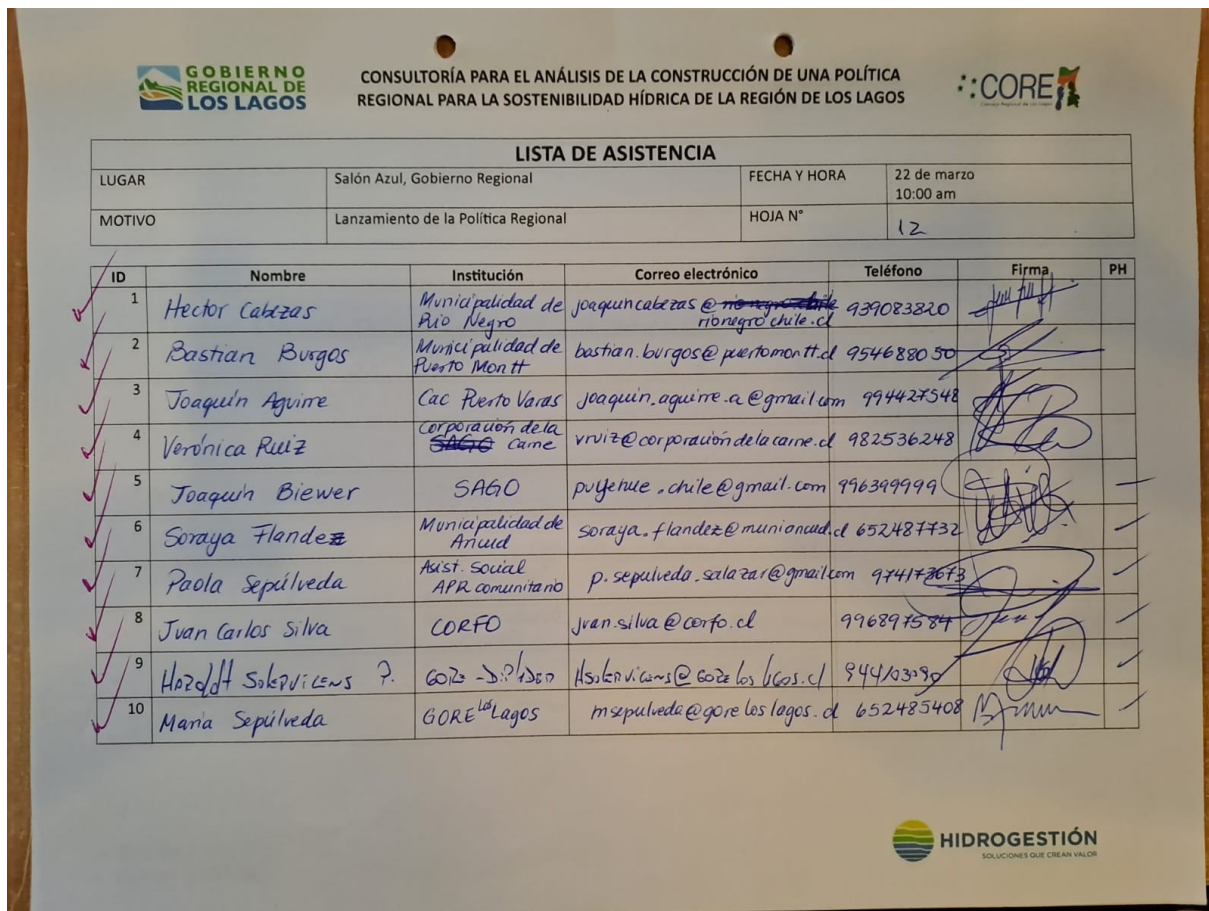 GOBIERNO
REGIONAL DE
LOS LAGOS
CONSULTORÍA PARA EL ANÁLISIS DE LA CONSTRUCCIÓN DE UNA POLÍTICA
REGIONAL PARA LA SOSTENIBILIDAD HÍDRICA DE LA REGIÓN DE LOS LAGOS
CORE
Consejo Regional de Los Lagos
LISTA DE ASISTENCIA
LUGAR Salón Azul, Gobierno Regional FECHA Y HORA 22 de marzo
10:00 am
MOTIVO Lanzamiento de la Política Regional HOJA N° 12
ID Nombre Institución Correo electrónico Teléfono Firma PH
1 Hector Cabezas Municipalidad de Rio Negro joaquincabezas@rionegrochile.cl 939083820
2 Bastian Burgos Municipalidad de Puerto Montt bastian.burgos@puertomontt.cl 954688050
3 Joaquín Aguirre Cac Puerto Varas joaquin.aguirre.a@gmail.com 994427548
4 Verónica Ruiz Corporación de la Carne vruiz@corporacióndelacarne.cl 982536248
5 Joaquín Biewer SAGO puyehue.chile@gmail.com 996399999
6 Soraya Flandez Municipalidad de Ancud soraya.flandez@muniancud.cl 652487732
7 Paola Sepúlveda Asist. Social APR comunitario p.sepulveda.salazar@gmail.com
8 Juan Carlos Silva CORFO juan.silva@corfo.cl 996897584
9 ?.
10 Maria Sepúlveda GORE Los Lagos msepulveda@goreloslagos.cl 652485408
HIDROGESTIÓN
SOLUCIONES QUE CREAN VALOR